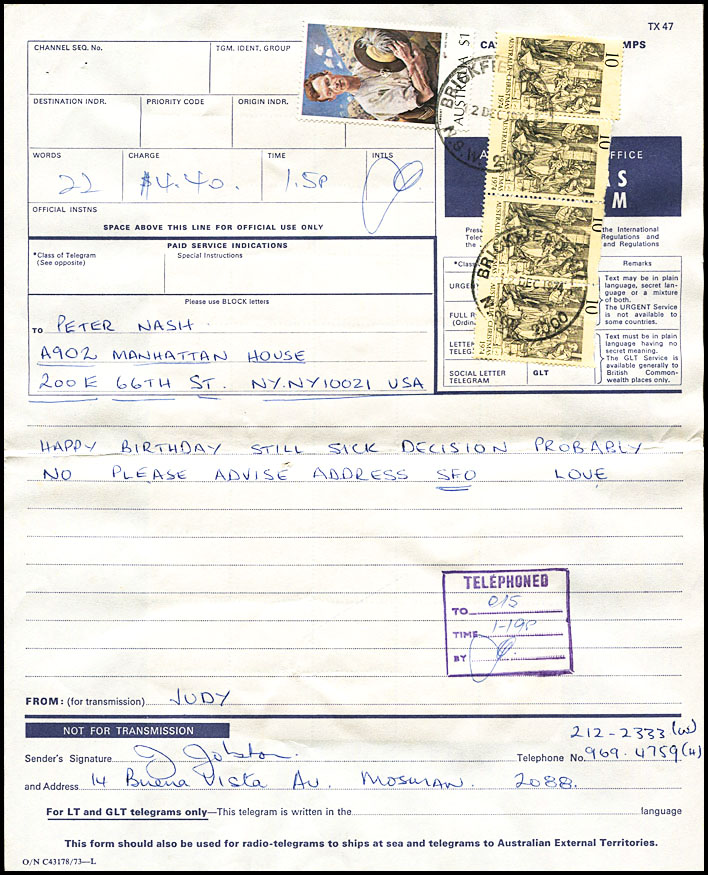 TX 47
CHANNEL SEQ. No.
TGM. IDENT, GROUP
DESTINATION INDR.
PRIORITY CODE
ORIGIN INDR.
WORDS
CHARGE
TIME
INTLS
22
$4.40.
1.5P
OFFICIAL INSTNS
SPACE ABOVE THIS LINE FOR OFFICIAL USE ONLY
AUSTRALIA $1
10
AUSTRALIA-CHRISTMAS 1974
10
AUSTRALIA-CHRISTMAS 1974
10
AUSTRALIA-CHRISTMAS 1974
10
AUSTRALIA-CHRISTMAS 1974
2 DEC 1974
DEC 1974
2000
PAID SERVICE INDICATIONS
*Class of Telegram
(See opposite)
Special Instructions
Please use BLOCK letters
TO PETER NASH
A902 MANHATTAN HOUSE
200E 66TH ST. NY.NY10021 USA
OFFICE
International
Regulations and
and Regulations
*Class
Remarks
URGENT
Text may be in plain
language, secret lan-
guage or a mixture
of both.
The URGENT Service
is not available to
some countries.
FULL R
(Ordin
LETTER
TELEG
Text must be in plain
language having no
secret meaning.
The GLT Service is
available generally to
British Common-
wealth places only.
SOCIAL LETTER
TELEGRAM
GLT
HAPPY BIRTHDAY STILL SICK DECISION PROBABLY
NO PLEASE ADVISE ADDRESS SFO LOVE
TELEPHONED
TO 015
TIME 1-19P
BY
FROM: (for transmission) JUDY
NOT FOR TRANSMISSION
212-2333 (W)
Sender's Signature
Telephone No. 969.4759 (H)
and Address 14 Buena Vista Av. MOSMAN. 2088.
For LT and GLT telegrams only—This telegram is written in the language
This form should also be used for radio-telegrams to ships at sea and telegrams to Australian External Territories.
O/N C43178/73—L